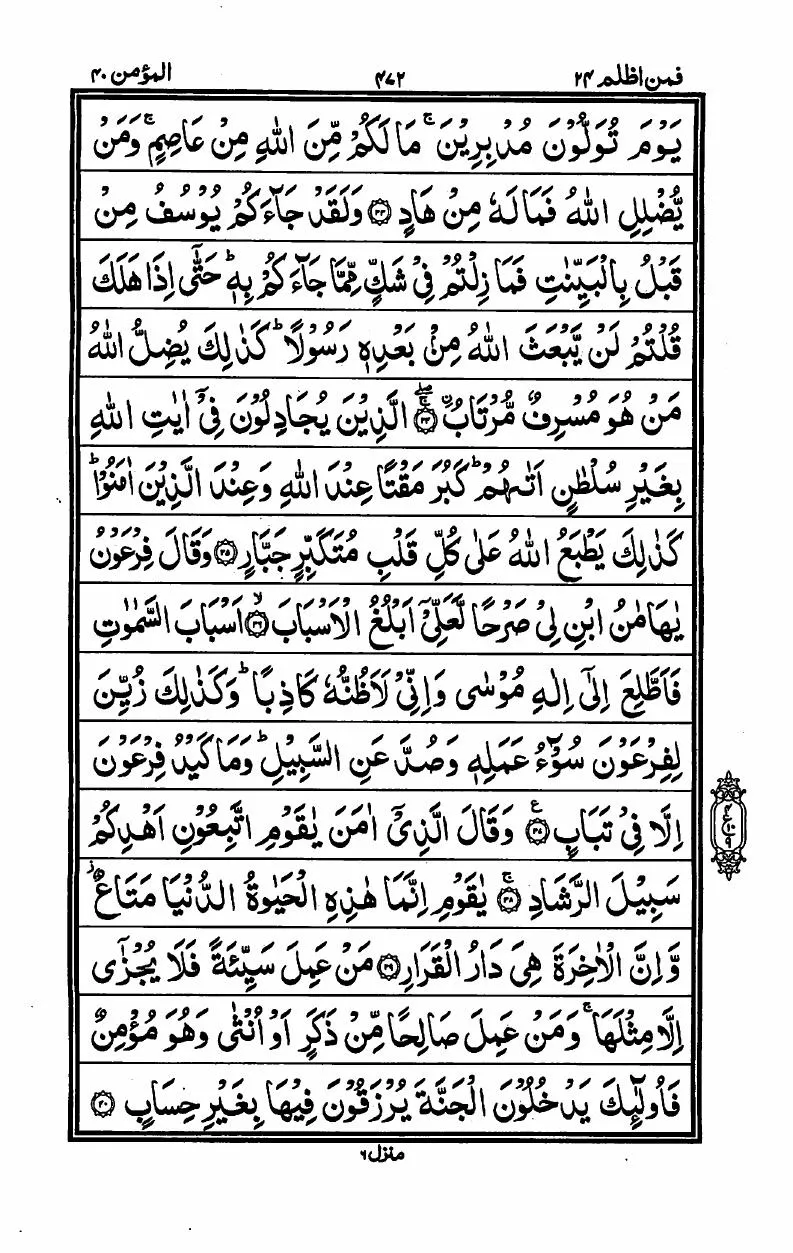 فمن اظلم ۲۴ ۴۷۲ المؤمن ۴۰
يَوْمَ تُوَلُّوْنَ مُدْبِرِيْنَ ۚ مَا لَكُمْ مِّنَ اللّٰهِ مِنْ عَاصِمٍ ۚ وَمَنْ
يُّضْلِلِ اللّٰهُ فَمَا لَهٗ مِنْ هَادٍ ۝۳۳ وَلَقَدْ جَآءَكُمْ يُوْسُفُ مِنْ
قَبْلُ بِالْبَيِّنٰتِ فَمَا زِلْتُمْ فِيْ شَكٍّ مِّمَّا جَآءَكُمْ بِهٖ ؕ حَتّٰٓى اِذَا هَلَكَ
قُلْتُمْ لَنْ يَّبْعَثَ اللّٰهُ مِنْۢ بَعْدِهٖ رَسُوْلًا ؕ كَذٰلِكَ يُضِلُّ اللّٰهُ
مَنْ هُوَ مُسْرِفٌ مُّرْتَابُ ۝۳۴ ۚۖ الَّذِيْنَ يُجَادِلُوْنَ فِيْٓ اٰيٰتِ اللّٰهِ
بِغَيْرِ سُلْطٰنٍ اَتٰىهُمْ ؕ كَبُرَ مَقْتًا عِنْدَ اللّٰهِ وَعِنْدَ الَّذِيْنَ اٰمَنُوْا ؕ
كَذٰلِكَ يَطْبَعُ اللّٰهُ عَلٰى كُلِّ قَلْبِ مُتَكَبِّرٍ جَبَّارٍ ۝۳۵ وَقَالَ فِرْعَوْنُ
يٰهَامٰنُ ابْنِ لِيْ صَرْحًا لَّعَلِّيْٓ اَبْلُغُ الْاَسْبَابَ ۝۳۶ ۙ اَسْبَابَ السَّمٰوٰتِ
فَاَطَّلِعَ اِلٰٓى اِلٰهِ مُوْسٰى وَاِنِّيْ لَاَظُنُّهٗ كَاذِبًا ؕ وَكَذٰلِكَ زُيِّنَ
لِفِرْعَوْنَ سُوْٓءُ عَمَلِهٖ وَصُدَّ عَنِ السَّبِيْلِ ؕ وَمَا كَيْدُ فِرْعَوْنَ
اِلَّا فِيْ تَبَابٍ ۝۳۷ ع وَقَالَ الَّذِيْٓ اٰمَنَ يٰقَوْمِ اتَّبِعُوْنِ اَهْدِكُمْ
سَبِيْلَ الرَّشَادِ ۝۳۸ ۚ يٰقَوْمِ اِنَّمَا هٰذِهِ الْحَيٰوةُ الدُّنْيَا مَتَاعٌ ز
وَّاِنَّ الْاٰخِرَةَ هِيَ دَارُ الْقَرَارِ ۝۳۹ مَنْ عَمِلَ سَيِّئَةً فَلَا يُجْزٰٓى
اِلَّا مِثْلَهَا ۚ وَمَنْ عَمِلَ صَالِحًا مِّنْ ذَكَرٍ اَوْ اُنْثٰى وَهُوَ مُؤْمِنٌ
فَاُولٰٓئِكَ يَدْخُلُوْنَ الْجَنَّةَ يُرْزَقُوْنَ فِيْهَا بِغَيْرِ حِسَابٍ ۝۴۰
منزل ۶